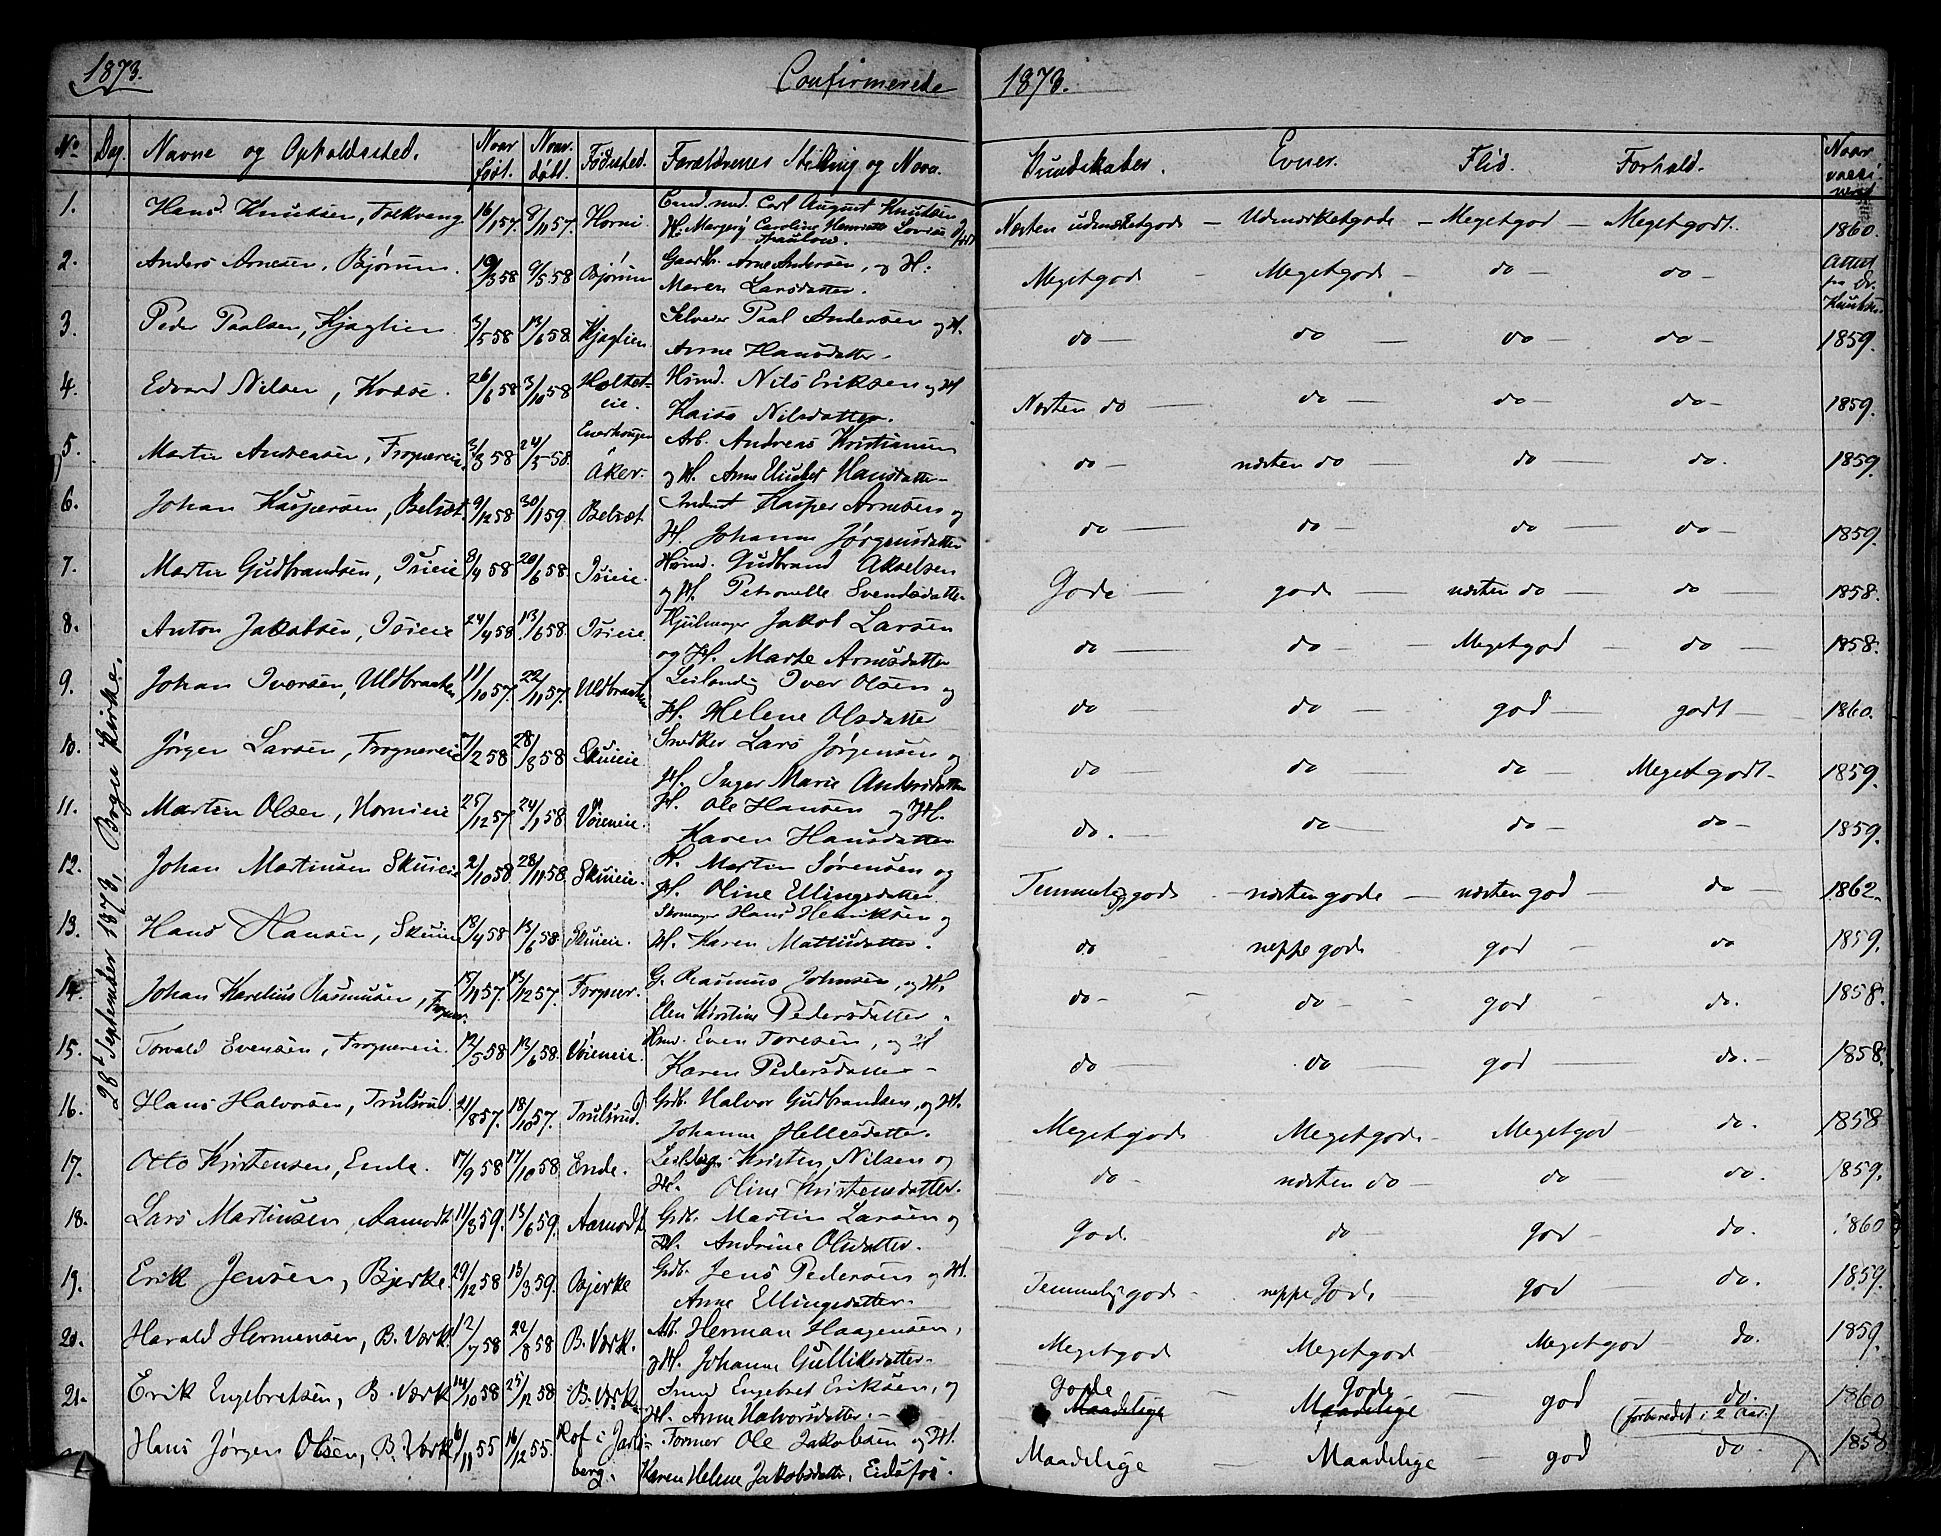 1873. Confirmerede 1873.
No Dag. Navne og Opholdssted. Naar født. Naar døbt. Fødested. Forældrenes Stilling og Navn. Kundskaber. Evner. Flid. Forhold. Naar vacci-
nered
28de September 1873, Bryn Kirke.
1. Hans Knutsen, Falkvang 16/1 57. 8/11 57. Horni. Cand. med. Carl August Knutsen Næsten udmærketgode – Udmærketgode – Megetgod – Megetgodt. 1860.
H. Margery Caroline Henriette Lovise
Thaulow.
2. Anders Arnesen, Bjørum 19/3 58 9/5 58 Bjørum Gaardbr. Arne Andersen, og H: Megetgode – Megetgode – do – do – Attest
Maren Larsdatter. fra Dr. Knutsen
3. Peder Paalsen, Kjaglien 3/5 58 13/6 58. Kjaglien. Selveier Paal Andersen og H. do – do do – do – 1859.
Anne Hansdatter –
4. Edvard Nilsen, Kodse. 26/6 58 3/10 58 Holtet- Hsmd. Nils Eriksen og H Næsten do – do – do – do – 1859.
eie. Kaisa Nilsdatter.
5. Martin Andreasen, Frognereie. 3/3 58 24/5 58. Enerhougen Arb. Andreas Kristiansen do – næsten do – do – do. 1859.
Aker. og H. Anne Elisabet Hansdatter –
6. Johan Kaspersen, Belsæt. 9/12 58 30/1 59. Belsæt. Inderst Kasper Arnesen og do – do – do – do – 1859.
H. Johanne Jørgensdatter
7. Martin Gudbrandsen, Isieie 8/4 58 20/6 58. Isieie. Hsmd. Gudbrand Akselsen Gode – gode – næsten do – do – 1858.
og H. Petronelle Svendsdatter.
8. Anton Jakobsen, Isieie 24/4 58 13/6 58. Isieie. Hjulmager Jakob Larsen do – do – Megetgod – do – 1858.
og H. Marte Arnesdatter
9. Johan Iversen, Uldbraaten 11/10 57. 22/11 57. Uldbraaten Leilændig Iver Olsen og do – do – god – godt – 1860.
H. Helene Olsdatter
10. Jørgen Larsen, Frognereie 7/2 58 28/8 58 Skuieie Snedker Lars Jørgensen og do – do – do – Megetgodt – 1859.
H. Inger Marie Andersdatter
11. Martin Olsen, Hornieie 25/12 57 24/1 58 Vøieneie. H. Ole Hansen og H. do. – do – do – do – 1859.
Karen Hansdatter
12. Johan Martinsen Skuieie 2/10 58 28/11 58. Skuieie. H. Martin Sørensen og Temmeliggode – næstengode – næsten god – do – 1862.
H. Oline Ellingsdatter.
13. Hans Hansen, Skuieie 18/4 58 13/6 58. Skuieie. Skomager Hans Henriksen og do neppe gode god – do 1859.
H. Karen Mattisdatter.
14. Johan Karelius Rasmussen, Frogner. 15/11 57. 13/12 57. Frogner. G. Rasmus Johnsen, og H. do – do – god do. 1858.
Elen Kirstine Pedersdatter.
15. Torvald Evensen, Frognereie. 12/5 58 13/6 58. Vøieneie. Hsmd. Even Toresen, og H do – do god – do. – 1858.
Karen Pedersdatter –
16. Hans Halvorsen, Trulsrud. 21/8 57. 18/10 57. Trulsrud. Grdb. Halvor Gudbrandsen, og H. Megetgode Megetgode – Megetgod – do. 1858
Johanne Hellesdatter.
17. Otto Kristensen, Ende. 17/9 58 17/10 58 Ende. Leilændig Kristen Nilsen og do – næsten do – do – do. 1859.
H. Oline Kristensdatter.
18. Lars Martinsen, Aamodt 11/3 59. 13/6 59. Aamodt Grdb. Martin Larsen og gode. do – god – do. 1860
H. Andrine Olsdatter.
19. Erik Jensen, Bjerke 29/12 58 13/3 59. Bjerke Grdb. Jens Pedersen og H. Temmeliggode – neppe Gode – god do. 1859.
Anne Ellingsdatter.
20. Harald Hermansen, B. Værk. 12/7 58 22/8 58 B. Værk. Arb. Herman Haagensen, Megetgod Megetgod Megetgod – do. 1859.
og H. Johanne Gulliksdatter.
21. Erik Engebretsen, B. Værk 14/10 58 25/12 58 B. Værk. Smed Engebret Eriksen, og Gode Maadelige Gode Maadelige – god do. 1860
H. Anne Halvorsdatter. –
(forberedet i 2 Aar)
Hans Jørgen Olsen, B. Værk 6/11 55 16/12 55. Hof i Jarls- Former Ole Jakobsen og H. Maadelige – Maadelige god do. 1858
berg. Karen Helene Jakobsdatter, Eidsfos.